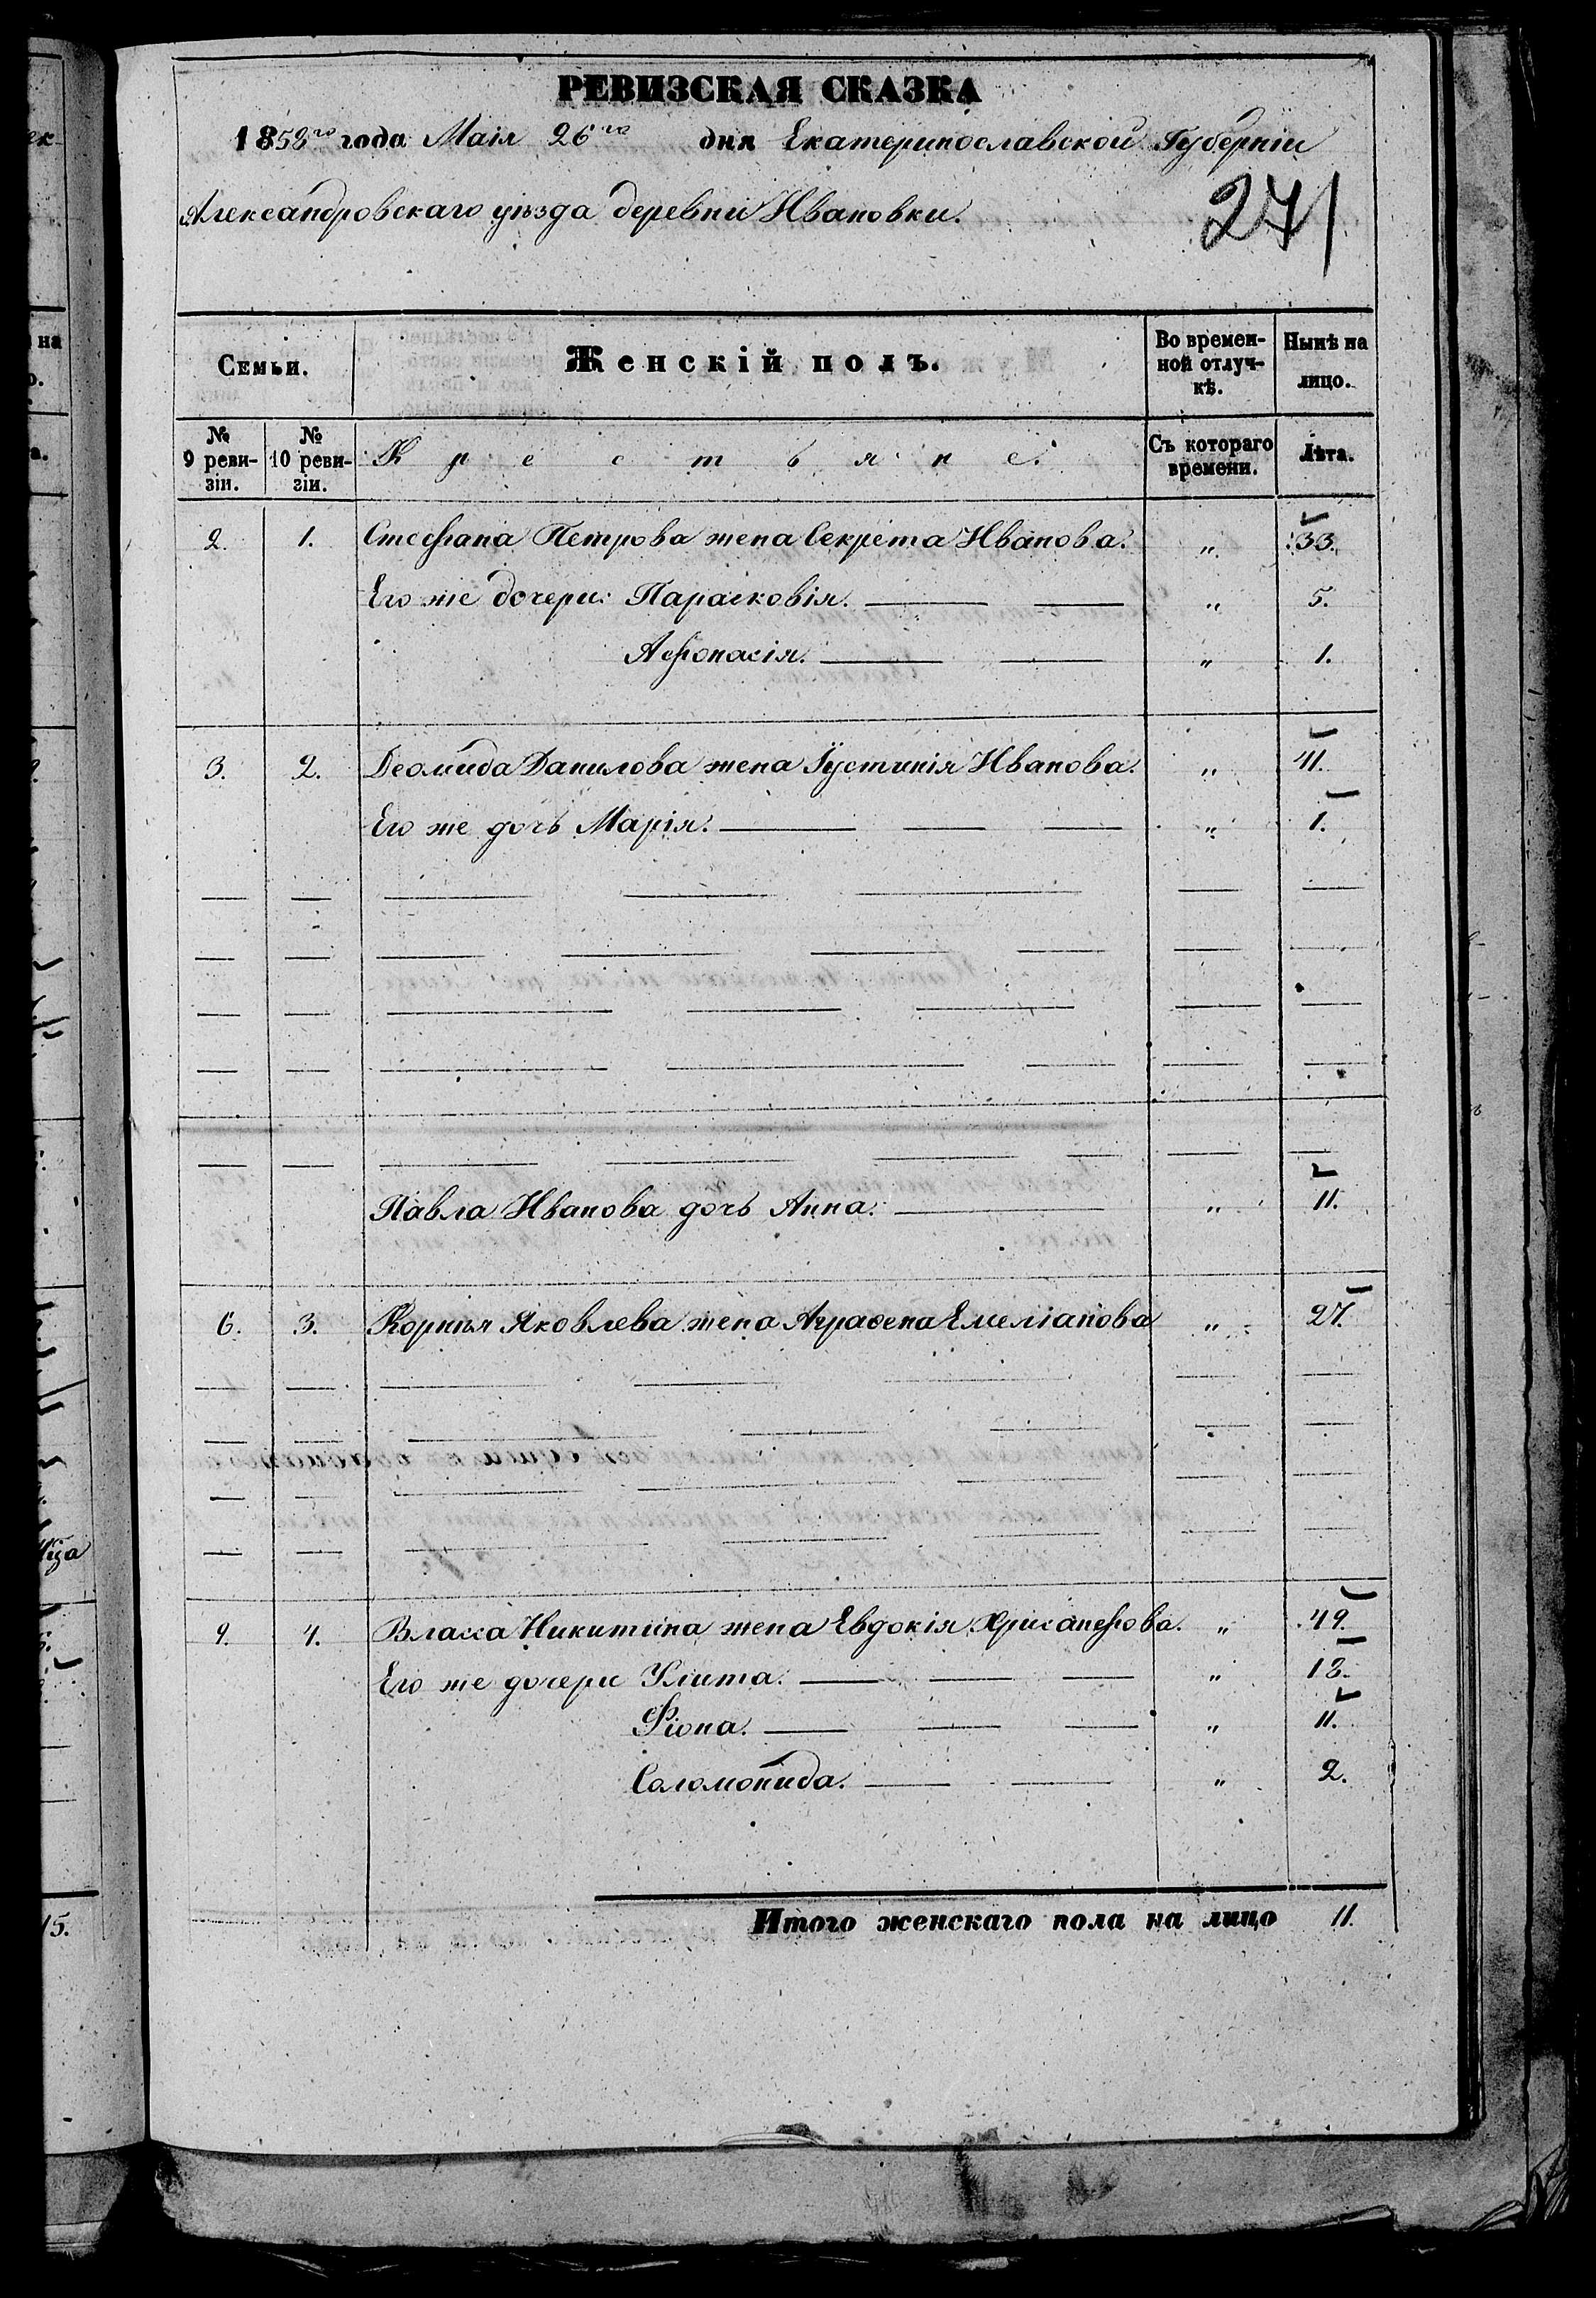 РЕВИЗСКАЯ СКАЗКА
1858го года Маія 26го дня Екатеринославской Губерніи
Александровскаго уѣзда деревни Ивановки.
271
Семьи.
Женскій полъ.
Во времен-
ной отлуч-
кѣ.
Нынѣ на
лицо.
№
9 реви-
зіи.
№
10 реви-
зіи.
Крестьяне.
Съ котораго
времени.
Лѣта.
2. 1. Стефана Петрова жена Секрета Иванова. " 33.
Его же дочери: Парасковія. " 5.
Афонасія. " 1.
3. 2. Деомида Данилова жена Іустинія Иванова. " 41.
Его же дочь Марія. " 1.
Павла Иванова дочь Анна. " 11.
6. 3. Корнѣя Яковлева жена Аграфена Емеліанова " 27.
9. 4. Власа Никитина жена Евдокія Хрисанфова. " 49.
Его же дочери Улита. " 13.
Фіона. " 11.
Соломонида. " 2.
Итого женскаго пола на лицо 11.
15.